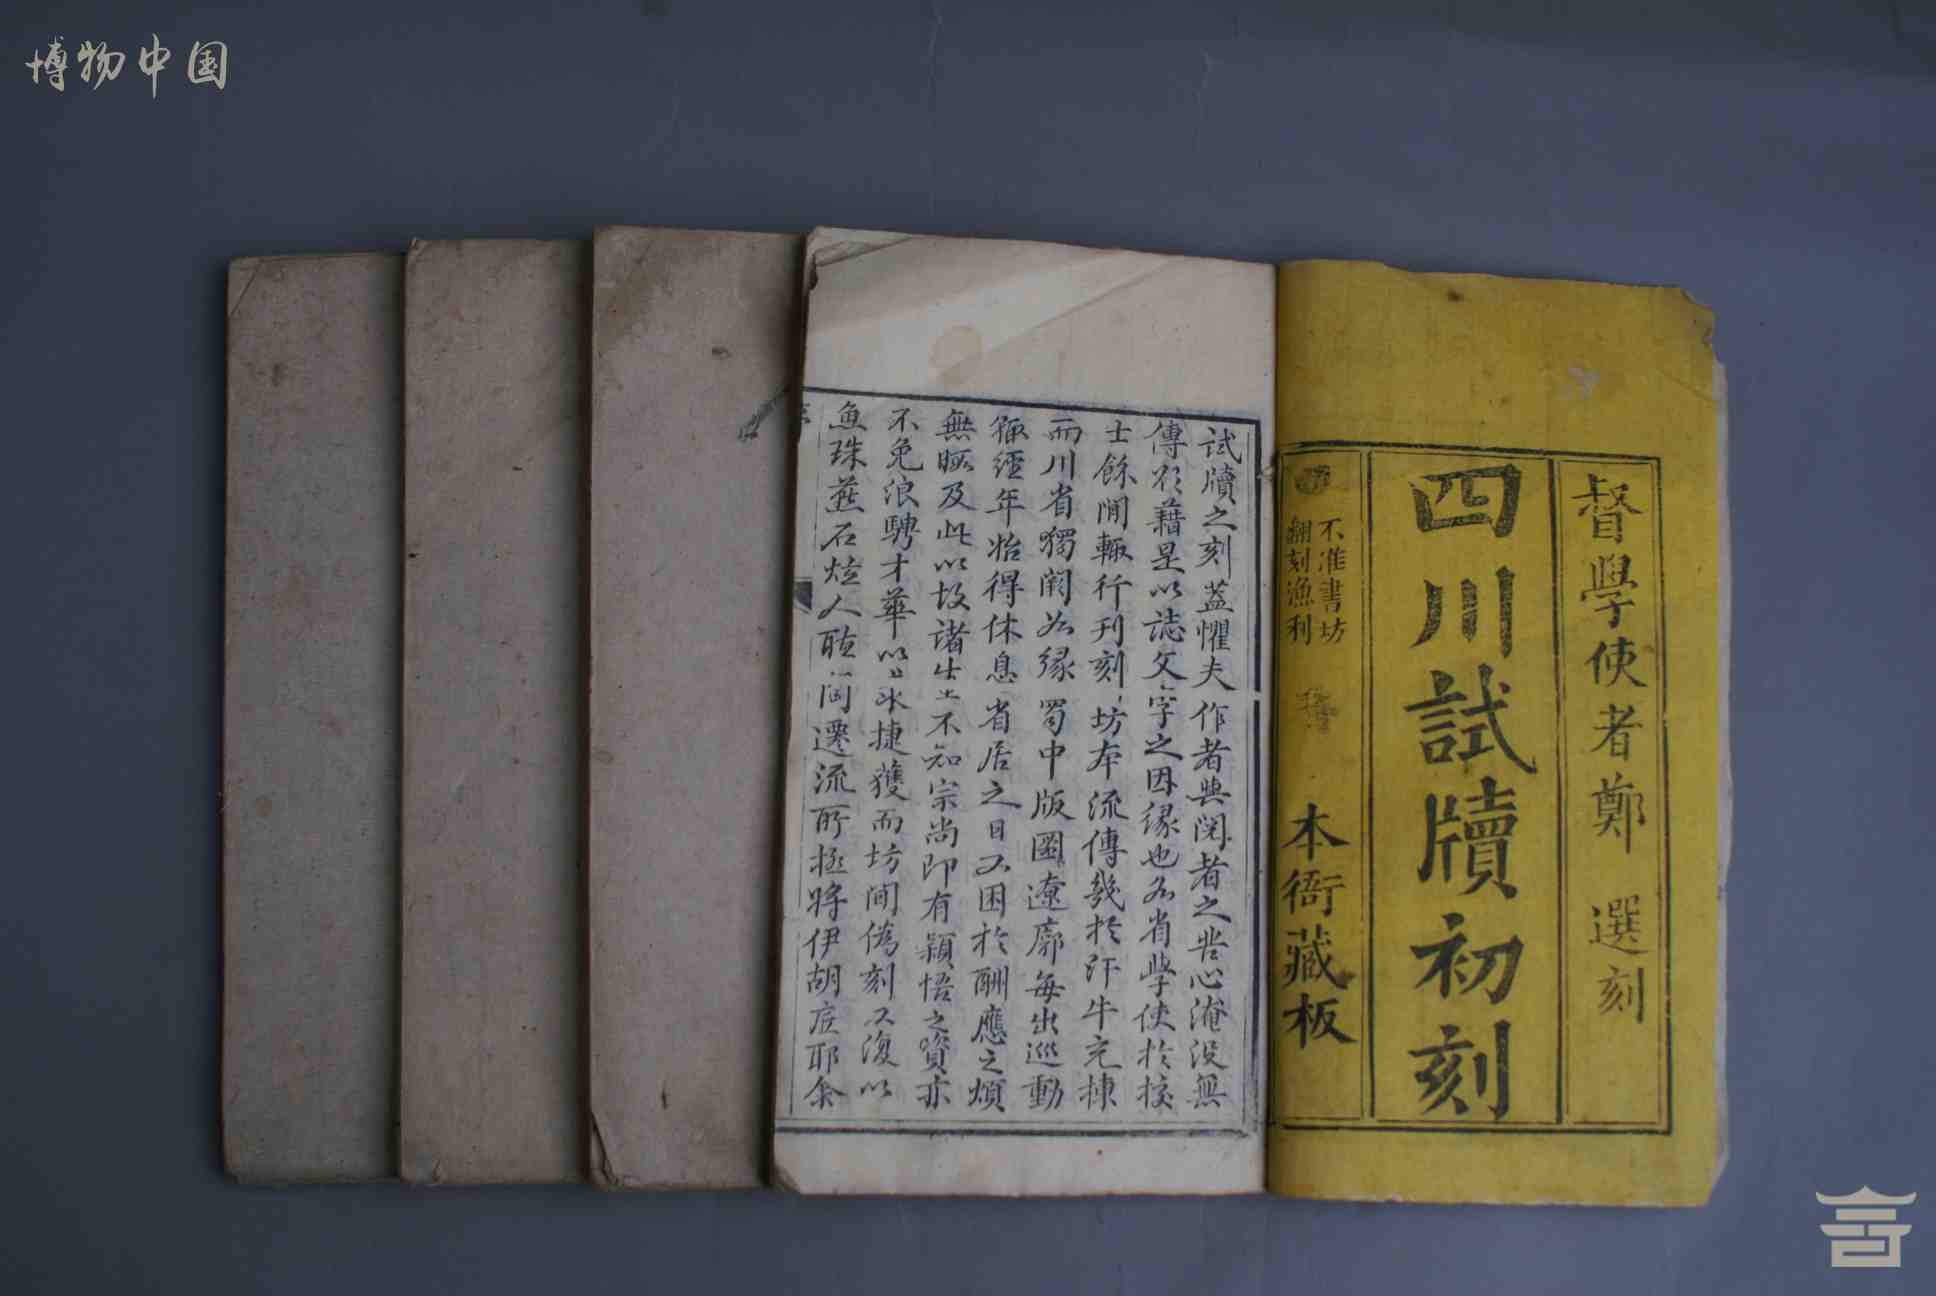 博物中国
督學使者鄭 選刻
四川試牘初刻
不准書坊
翻刻漁利
本衙藏板
試牘之刻蓋懼夫作者與閱者之苦心淹没無
傳欲藉是以誌文字之因緣也各省學使於校
士餘閒輒行刊刻坊本流傳幾於汗牛充棟
而川省獨闕者緣蜀中版圖遼廓每出巡動
輒經年始得休息省居之日又困於酬應之煩
無暇及此以故諸生不知宗尚即有穎悟之資亦
不免浪騁才華以求捷獲而坊間偽刻又復以
魚珠燕石炫人聽聞遷流所極將伊胡底耶余